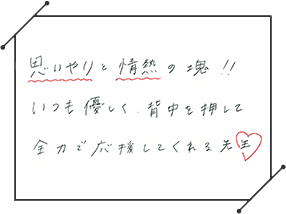 思いやりと情熱の塊!!
いつも優しく、背中を押して
全力で応援してくれる先生